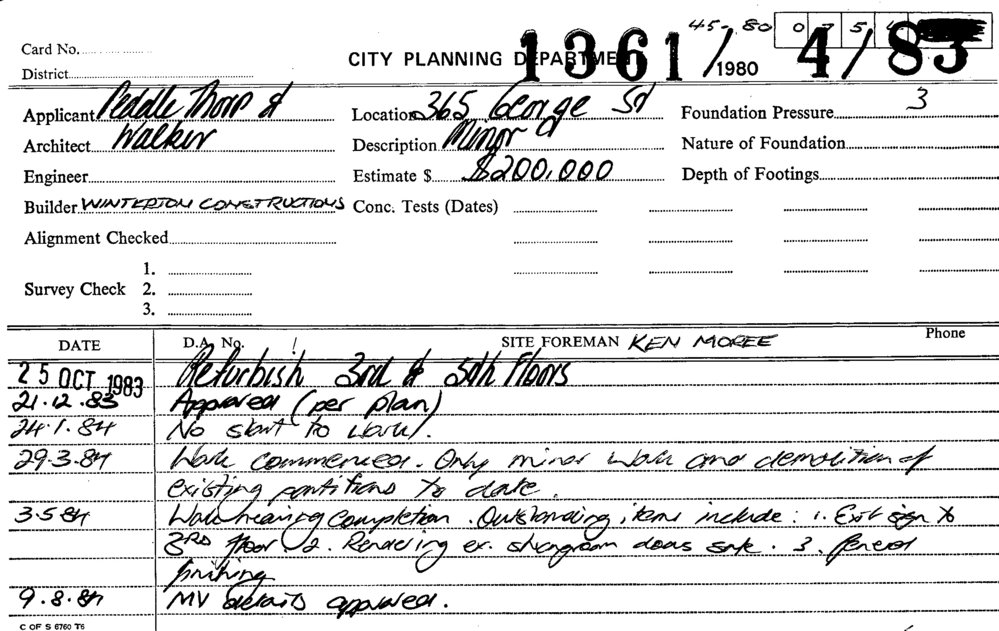 45-80 0 7 5 4
Card No.
CITY PLANNING DEPARTMENT 1361/1980 4/83
District
Applicant Peddle Thorp & Location 365 George St Foundation Pressure 3
Architect Walker Description Minor Nature of Foundation
Engineer Estimate $ $200,000 Depth of Footings
Builder WINTERTON CONSTRUCTIONS Conc. Tests (Dates)
Alignment Checked
1.
Survey Check 2.
3.
DATE D.A. No. ! SITE FOREMAN KEN MOREE Phone
25 OCT 1983 Refurbish 3rd & 5th Floors
21.12.83 Approved (per plan)
24.1.84 No start to work.
29.3.84 Work commenced. Only minor work and demolition of
existing partitions to date.
3.5.84 Work nearing completion. Outstanding items include: 1. Exit sign to
3RD floor 2. Rendering ex. doors 3. General
finishing
9.8.84 MV details approved.
C OF S 6760 T6